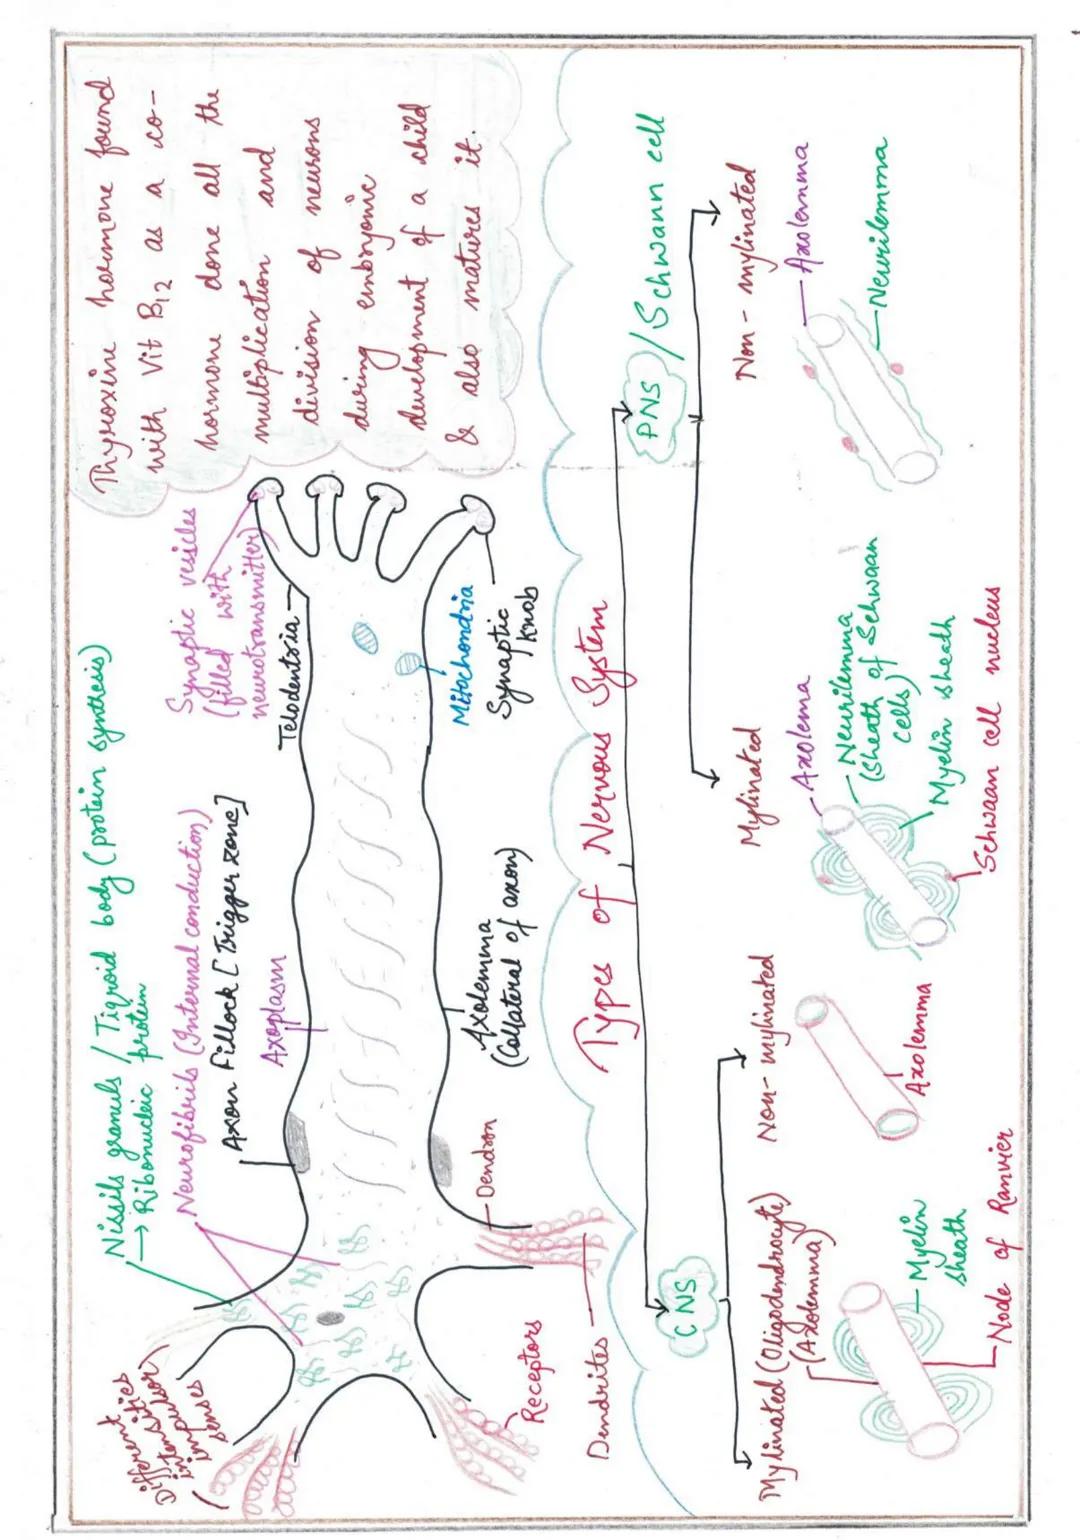 Nissils granuls / Tigroid body (protein synthesis)
→ Ribonucleic protein
Neurofibrils (Internal conduction)
Axon Fillock [Trigger zone]
Axoplasm
Different
intensities
impulsor
senses
Synaptic vesicles
(filled with
neurotransmitter)
Telodentria
Thyroxine hormone found
with Vit B12 as a co-
hormone done all the
multiplication and
division of neurons
during embryonic
development of a child
& also matures it.
Mitochondria
Synaptic
Knob
Axolemma
(Collateral of axon)
Dendron
Receptors
Dendrites
Types of Nervous System
CNS
PNS / Schwann cell
Mylinated (Oligodendrocyte)
(Axolemma)
Myelin
sheath
Node of Ranvier
Non-mylinated
Axolemma
Mylinated
Axolema
Neurilemma
(sheath of Schwaan
cells)
Myelin sheath
Schwaan cell nucleus
Non-mylinated
Axolemma
Neurilemma